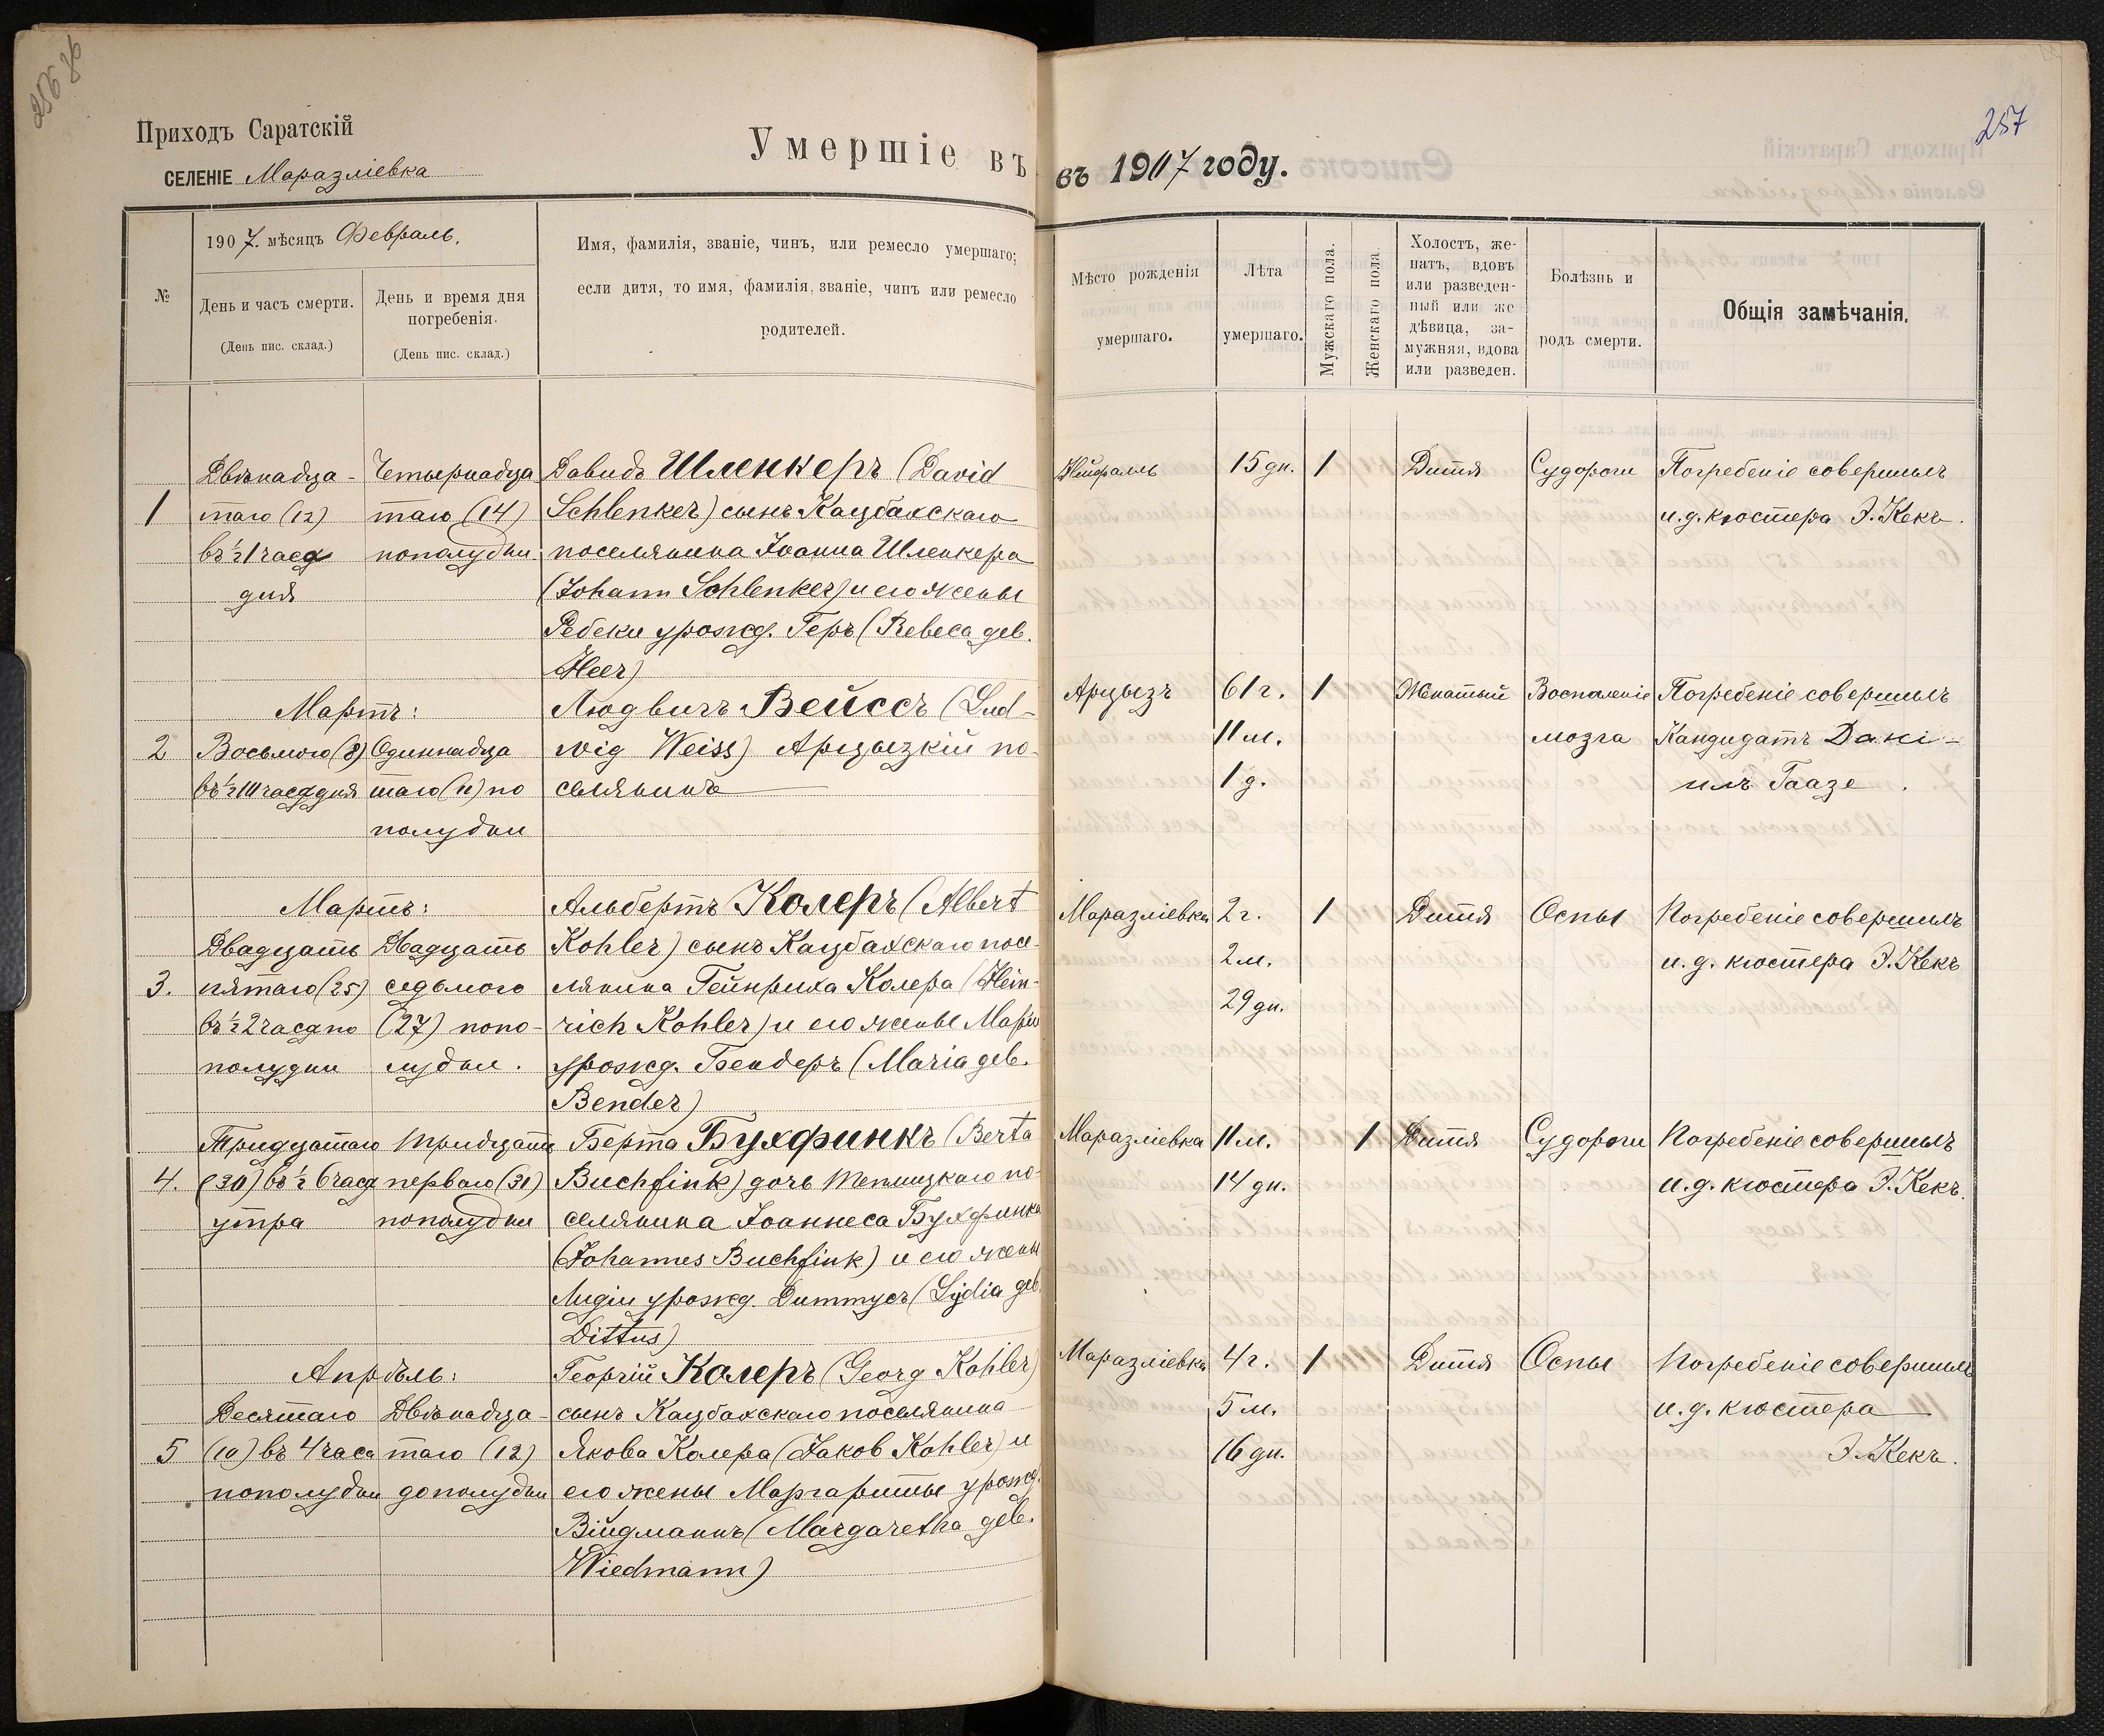 257
Приходъ Саратскій
СЕЛЕНІЕ Маразліевка
Умершіе въ
въ 1907 году.
№
1907. мѣсяцъ Февраль.
День и часъ смерти.
(День пис. склад.)
День и время дня
погребенія.
(День пис. склад.)
Имя, фамилія, званіе, чинъ, или ремесло умершаго;
если дитя, то имя, фамилія, званіе, чинъ или ремесло
родителей.
Мѣсто рожденія
умершаго.
Лѣта
умершаго.
Мужскаго пола.
Женскаго пола
Холостъ, же-
натъ, вдовъ
или разведен-
ный или же
дѣвица, за-
мужняя, вдова
или разведен.
Болѣзнь и
родъ смерти.
Общія замѣчанія.
1
Двѣнадца-
таго (12)
въ ½1 часа
дня
Четырнадца
таго (14)
пополудни
Давидъ Шленкеръ (David
Schlenker) сынъ Кацбахскаго
поселянина Іоанна Шленкера
(Johann Schlenker) и его жены
Ребеки урожд. Геръ (Rebeca geb.
Heer)
15 дн.
1
Дитя
Судороги
Погребеніе совершилъ
и.д. кюстера Э. Кекъ.
Мартъ:
2
Восьмого (8)
въ ½10 часа дня
Одиннадца
таго (11) по
полудни
Людвигъ Вейссъ (Lud-
wig Weiss) Арцызкій по-
селянинъ
Арцызъ
61 г.
11 м.
1 д.
1
Женатый
Воспаленіе
мозга
Погребеніе совершилъ
Кандидатъ Дані-
илъ Гаазе.
Мартъ:
3.
Двадцать
пятаго (25)
въ ½2 часа по
полудни
Двадцать
седьмого
(27) попо-
лудни.
Альбертъ Колеръ (Albert
Kohler) сынъ Кацбахскаго посе-
лянина Гейнриха Колера (Hein-
rich Kohler) и его жены Маріи
урожд. Бендеръ (Maria geb.
Bender)
Маразліевка
2 г.
2 м.
29 дн.
1
Дитя
Оспы
Погребеніе совершилъ
и.д. кюстера Э. Кекъ
4.
Тридцатаго
(30) въ ½ 6 часа
утра
тридцать
перваго (31)
пополудни
Берта Бухфинкъ (Berta
Buchfink) дочь Теплицкаго по-
селянина Іоаннеса Бухфинка
(Johannes Buchfink) и его жены
Лидіи урожд. Диттусъ (Lydia geb.
Dittus)
Маразліевка
11 м.
14 дн.
1
Дитя
Судороги
Погребеніе совершилъ
и.д. кюстера Э. Кекъ.
Апрѣль:
5
Десятаго
(10) въ 4 часа
пополудни
Двѣнадца-
таго (12)
дополудни
Георгій Колеръ (Georg Kohler)
сынъ Кацбахскаго поселянина
Якова Колера (Jakob Kohler) и
его жены Маргариты урожд.
Видманнъ (Margaretha geb.
Wiedmann)
Маразліевка
4 г.
5 м.
16 дн.
1
Дитя
Оспы
Погребеніе совершилъ
и.д. кюстера
Э. Кекъ.